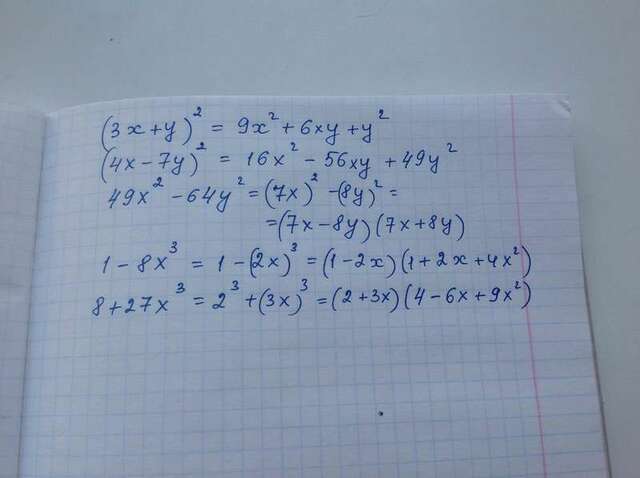 (3x+y)² = 9x²+6xy+y²
(4x-7y)² = 16x²-56xy+49y²
49x²-64y² = (7x)²-(8y)² =
=(7x-8y)(7x+8y)
1-8x³ = 1-(2x)³ = (1-2x)(1+2x+4x²)
8+27x³ = 2³+(3x)³ = (2+3x)(4-6x+9x²)